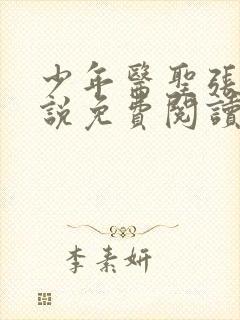 少年醫聖張
說免費閱讀
李素妍